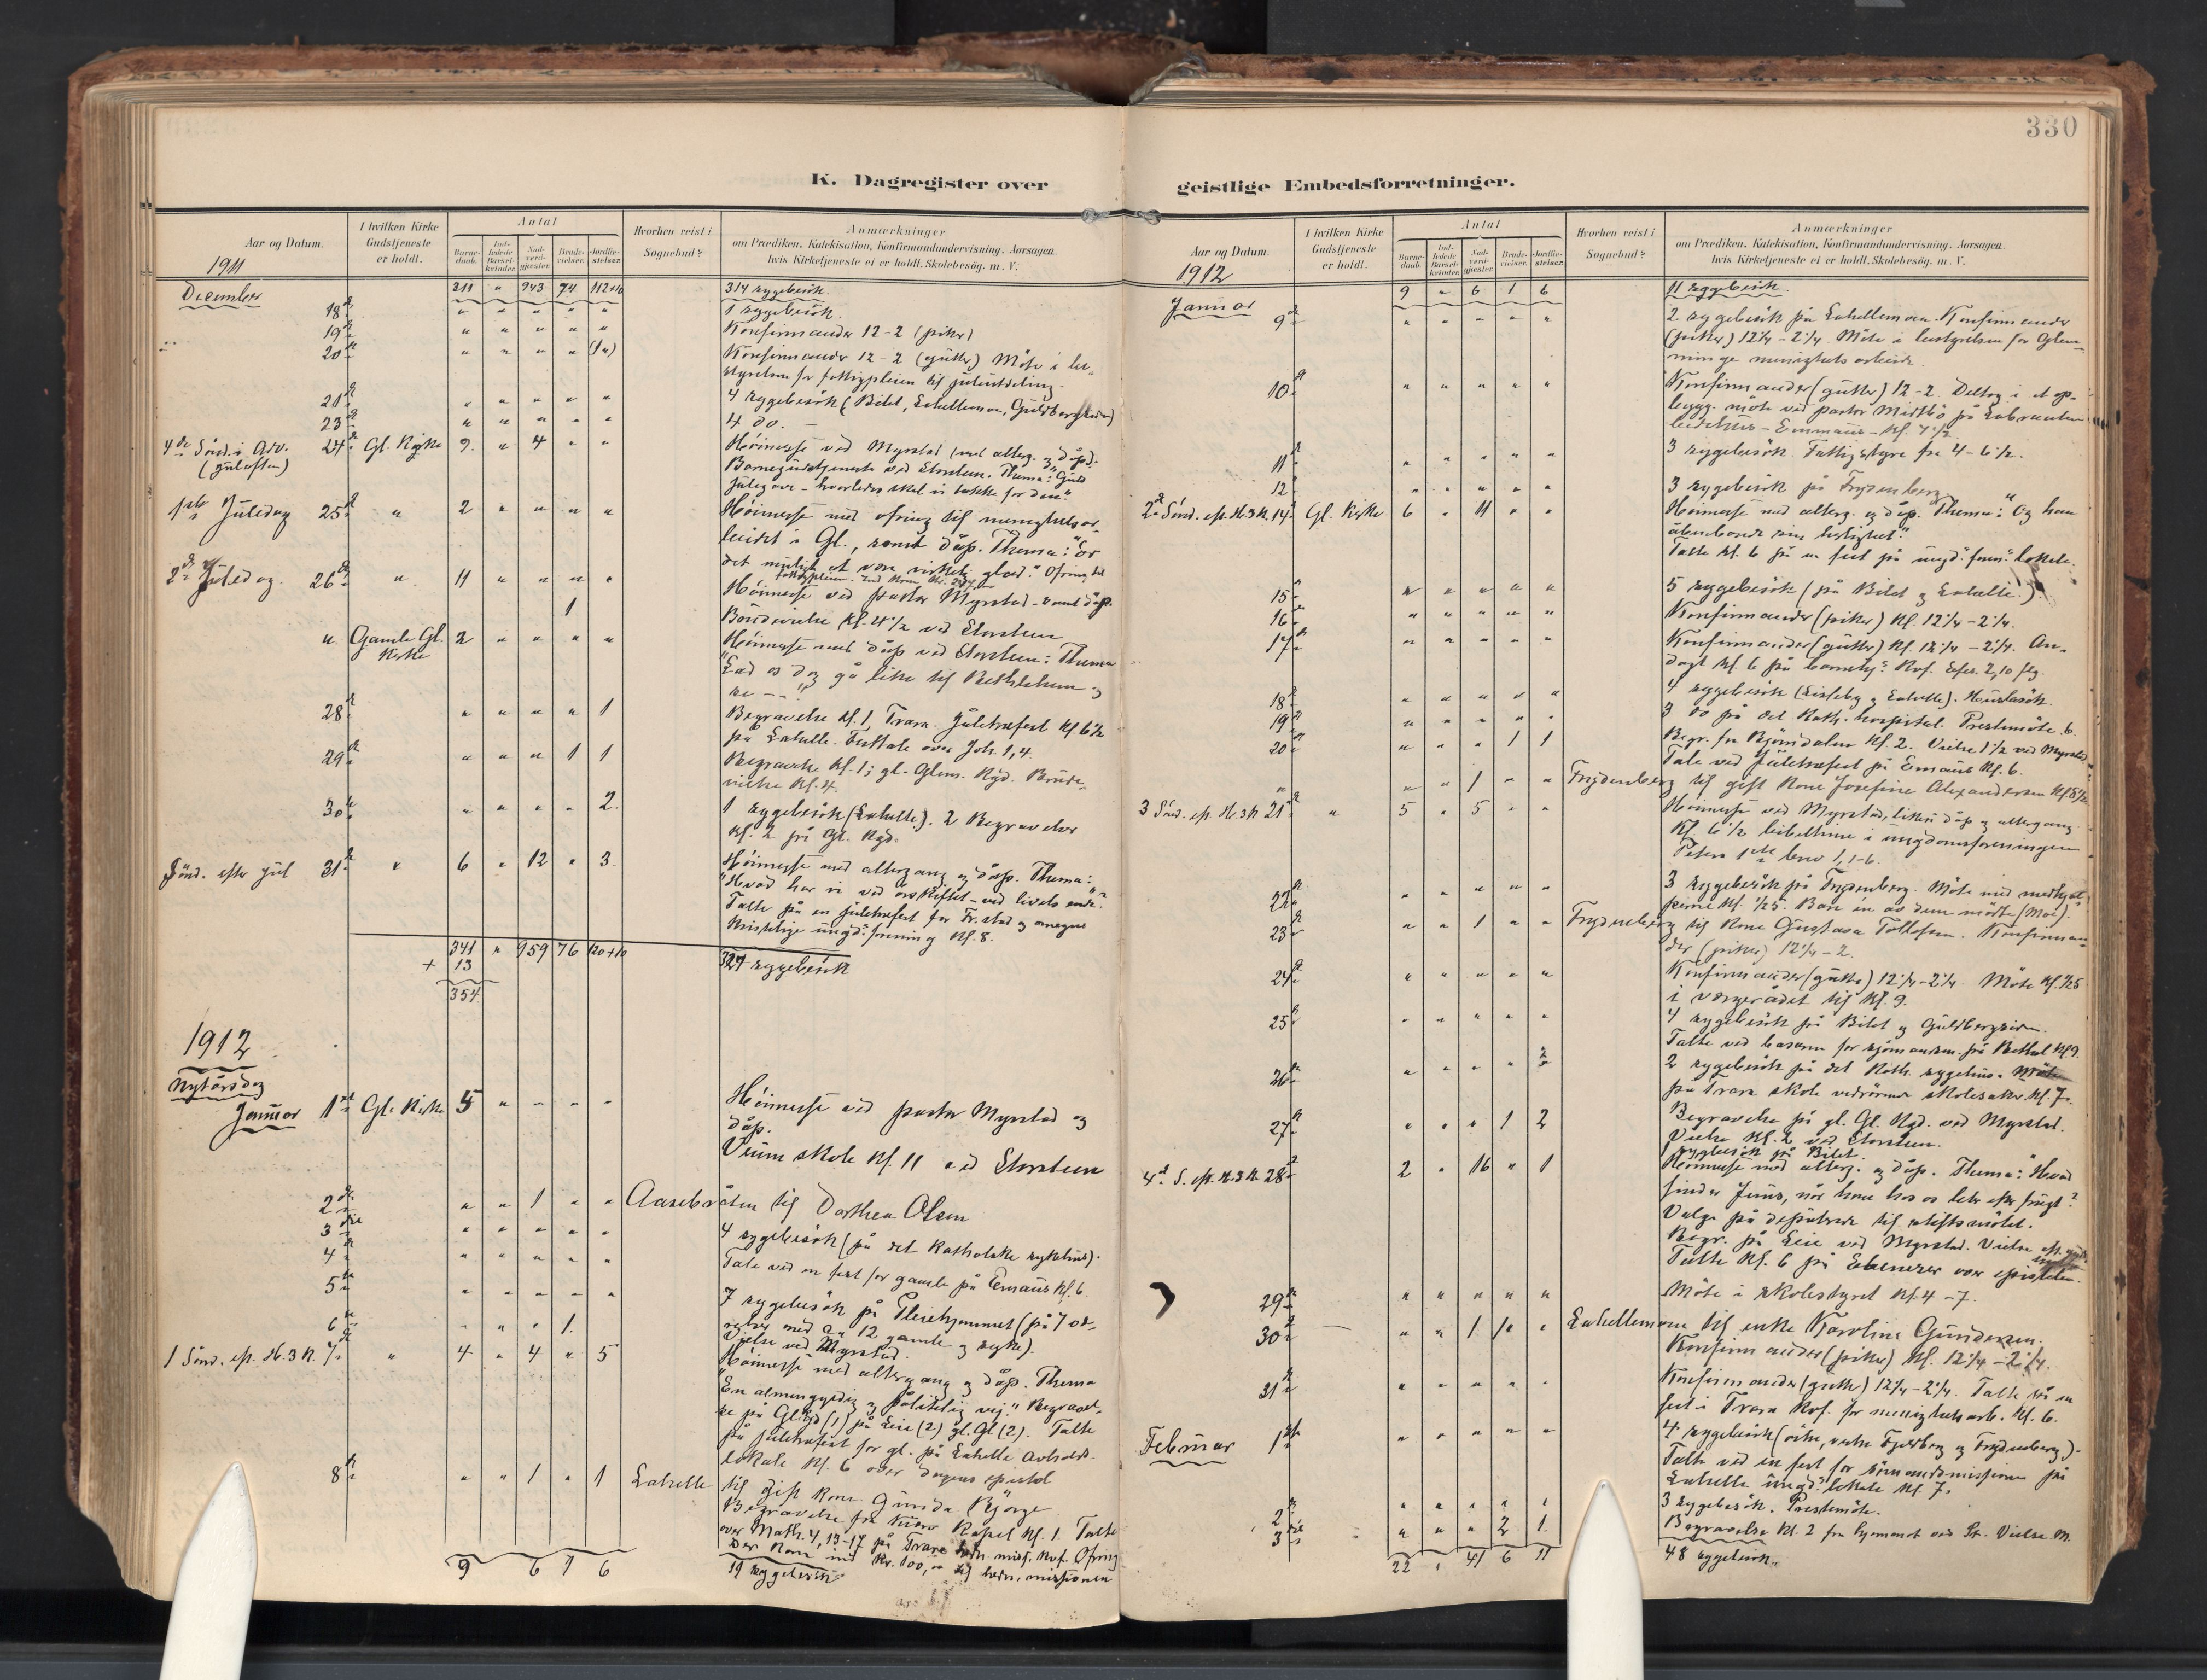 330
K. Dagregister over
Aar og Datum.
I hvilken Kirke
Gudstjeneste
er holdt.
Antal
Barne-
daab.
Ind-
ledede
Barsel-
kvinder.
Nad-
verd-
gjester.
Brude-
vielser.
Jordfæ-
stelser.
Hvorhen reist i
Sognebud?
Anmærkninger
om Prædiken, Katekisation, Konfirmandundervisning, Aarsagen,
hvis Kirketjeneste ei er holdt, Skolebesøg. m. V.
1911
December 311 " 943 74 112+10 314 sygebesök.
18de " " " " " 1 sygebesök.
19de " " " " " Konfirmander 12-2 (piker)
20de " " " " (1") Konfirmander 12-2 (gutter) Möte i be-
styrelsen for fattigpleien til juleutdeling.
21de " " " " " 4 sygebesök (Bilet, Labellemoen, Guldbergsiden)
23de " " " " " 4 do. -
4de Sönd. i Adv. 24de Gl. Kirke 9. " 4 " " Höimesse ved Myrstad (med alterg. og dåp).
(juleaften) Barnegudstjeneste ved Storsteen. Thema: "Guds
julegave - hvorledes skal vi takke for den".
1ste Juledag 25de " 2 " " " " Höimesse med ofring til menighetsar-
beidet i Gl., samt dåp. Thema: "Er
det mulig at være virkelig glad." Ofring til
fattigpleien.
2den Juledag. 26de " 11 " " " " Höimesse ved pastor Myrstad - samt dåp.
1 Brudevielse Kl. 4 1/2 ved Storsteen
" Gamle Gl. Kirke 2 " " " " Höimesse med dåp ved Storsteen: Thema
"Lad os dog gå like til Bethlehem og
se - -"
28de " " " " 1 Begravelse Kl. 1, Trara. Juletræfest Kl. 6 1/2
på Labelle. Festtale over Joh. 1,4.
29de " " " 1 1 Begravelse Kl. 1; gl. Glem. Kgd. Brude-
vielse Kl. 4.
30te " " " " 2. 1 sygebesök (Labelle). 2 Begravelser
Kl. 2 på Gl. Kgd.
Sönd. efter jul 31te " 6 " 12 " 3. Höimesse med altergang og dåp. Thema:
"Hvad har vi ved årsskiftet - ved livets ende"?
Talte på en juletræfest for Fr.stad og omegns
Kristelige ungd. forening Kl. 8.
341 " 959 76 120+10 327 sygebesök
+ 13
354.
1912
Nytårsdag
Januar 1ste Gl. Kirke 5 " " " " Höimesse ved pastor Myrstad og
dåp.
Veum skole Kl. 11 ved Storsteen
2den " " 1 " " Aasebråten til Dorthea Olsen
3die " " " " " 4 sygebesök (på det katholske sykehus).
4de " " " " " Tale ved en fest for gamle på Emaus Kl. 6.
5te " " " " " 7 sygebesök på Pleiehjemmet (på 7 væ-
relser med ca 12 gamle og syke).
6te " " " 1. Vielse ved Myrstad.
1 Sönd. eft. H.3 K. 7de " 4 " 4 " 5 Höimesse med altergang og dåp. Thema
"En almengyldig og pålitelig vej." Begravel-
se på Gl. Kgd (1) på Leie (2) gl. Gl (2). Talte
på juletræfest for gl. på Labelle avholds-
lokale Kl. 6 over dagens epistel
8de " " 1 " 1 Labelle til gift kone Gunda Bjørge
Begravelse fra Kapel Kl. 1. Talte
over Math. 4, 13-17 på Trara hedn. miss. kvf. Ofring
der kom ind Kr. 100,- til hedn. missionen
9 6 1 6 11 sygebesök
geistlige Embedsforretninger.
Aar og Datum.
I hvilken Kirke
Gudstjeneste
er holdt.
Antal
Barne-
daab.
Ind-
ledede
Barsel-
kvinder.
Nad-
verd-
gjester.
Brude-
vielser.
Jordfæ-
stelser.
Hvorhen reist i
Sognebud?
Anmærkninger
om Prædiken, Katekisation, Konfirmandundervisning, Aarsagen,
hvis Kirketjeneste ei er holdt, Skolebesøg. m. V.
1912
9 " 6 1 6 11 sygebesök.
Januar 9de " " " " " 2 sygebesök på Labellemoen. Konfirmander
(piker) 12 1/4 - 2 1/4. Möte i bestyrelsen for Glem-
minge menighets arbeide.
10de " " " " " Konfirmander (gutter) 12-2. Deltog i et op-
bygg. möte ved pastor på
- Emmaus - Kl. 7 1/2.
11te " " " " " 3 sygebesök. Fattigstyre fra 4-6 1/2.
12te " " " " " 3 sygebesök på Frydenberg.
2den Sönd. eft. H.3 K. 14de Gl. Kirke 6 " 11 " " Höimesse med alterg. og dåp. Thema: "Og han
åbenbarede sin herlighet".
Talte Kl. 6 på en fest på ungd. foren. lokale.
15de " " " " " 5 sygebesök (på Bilet og Labelle).
16de " " " " " Konfirmander (piker) Kl. 12 1/4 - 2 1/4.
17de " " " " " Konfirmander (gutter) Kl. 12 1/4 - 2 1/4. An-
dagt Kl. 6 på Kvf. Efes. 2,10 flg.
18de " " " " " 4 sygebesök (Lisleby og Labelle). Husbesök.
19de " " " " " 3 do på det Kath. hospital. Prestemöte 6.
20de " " " 1 1 Begr. fra Bjørndalen Kl. 2. Vielse 1 1/2 ved Myrstad.
Tale ved Juletræfest på Emaus Kl. 6.
" " " 1 " " Frydenberg til gift Kone Josefine Alexandersen Kl. 8 1/2
3 Sönd. eft. H.3 K 21de " 5 " 5 " " Höimesse ved Myrstad, likeså dåp og altergang.
Kl. 6 1/2 bibeltime i ungdomsforeningen
Peters 1ste brev 1, 1-6.
22de " " " " " 3 sygebesök på Frydenberg. Möte med medhjæl-
perne Kl. 1/2 5. Bare én av dem mötte (Moe).
23de " " 1 " " Frydenberg til Kone Gustava Tollefsen. Konfirman-
der (piker) 12 1/4 - 2.
24de " " " " " Konfirmander (gutter) 12 1/4 - 2 1/4. Möte Kl. 1/2 5
i værgerådet til Kl. 9.
25de " " " " " 4 sygebesök på Bilet og Guldbergsiden.
Talte ved basaren for sjömandsm. på Bethel Kl. 9.
26de " " " " 2 2 sygebesök på det Kath. sygehus. Möte
på Trara skole vedrörende skolesaker. Kl. 7.
27de " " " 1 2 Begravelse på gl. Gl. Kgd. ved Myrstad.
Vielse Kl. 2 ved Storsteen.
1 sygebesök på Bilet.
4de S. eft. H.3 K. 28de 2 " 16 " 1 Höimesse med alterg. og dåp. Thema: "Hvad
finder Jesus, når han hos os leter efter frugt?
Valg på deputerede til stiftsmötet.
Begr. på Leie ved Myrstad. Vielse
Talte Kl. 6 på Ebenezer over epistelen.
29de " " " " " Möte i skolestyret Kl. 4-7.
30te " " 1 " " Labellemoen til enke Karoline Gundersen.
Konfirmander (piker) Kl. 12 1/4 - 2 1/4.
31te " " " " " Konfirmander (gutter) 12 1/4 - 2 1/4. Talte på en
fest i Trara Kvf. for menighetsarb. Kl. 6.
Februar 1ste " " " " " 4 sygebesök (östre, vestre Fjeldberg og Frydenberg).
Talte ved en fest for sömandsmissionen på
Labelle ungd. lokale Kl. 7.
2den " " " " " 3 sygebesök. Prestemöte.
3die " " " 2 1. Begravelse Kl. 2 fra ved St. Vielse M.
22 " 41 6 11 48 sygebesök.